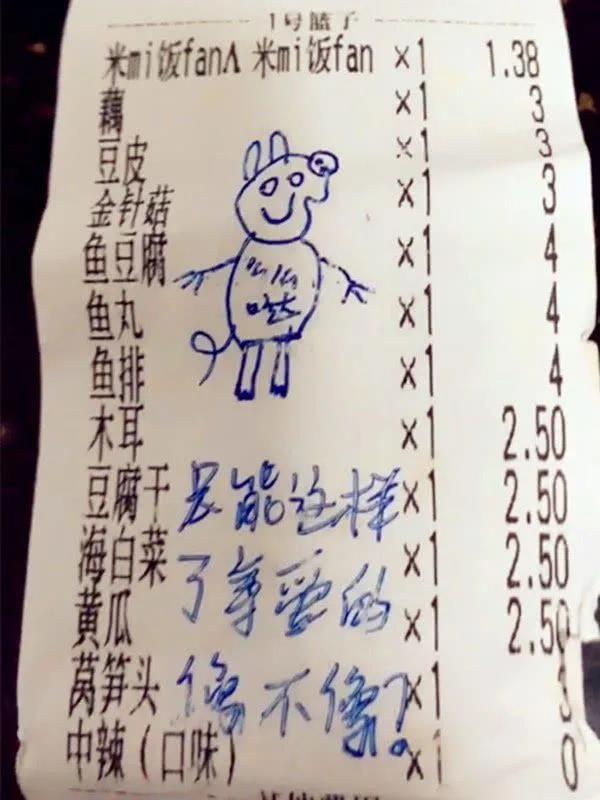 1号篮子
米mi饭fanA 米mi饭fan ×1 1.38
藕 ×1 3
豆皮 ×1 3
金针菇 ×1 3
鱼豆腐 ×1 4
鱼丸 ×1 4
鱼排 ×1 4
木耳 ×1 2.50
豆腐干 ×1 2.50
海白菜 ×1 2.50
黄瓜 ×1 2.50
莴笋头 ×1 3
中辣（口味） ×1 0
只能这样
了亲爱的
像不像?